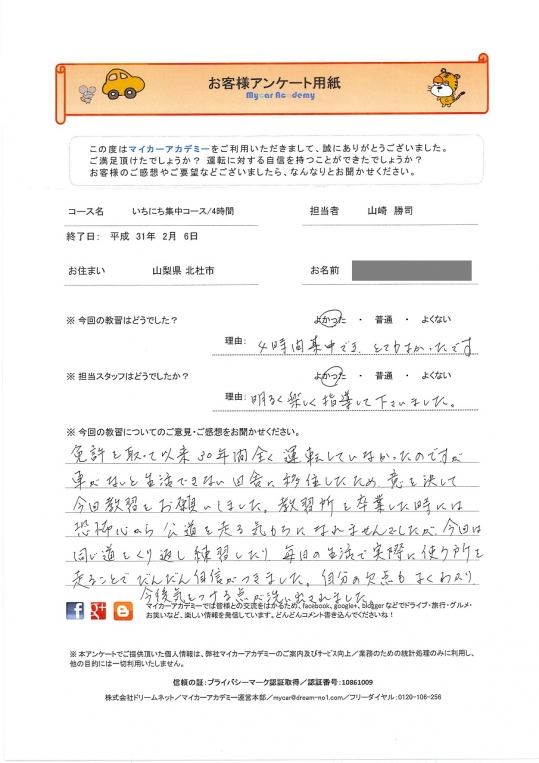 お客様アンケート用紙
Mycar Academy
この度はマイカーアカデミーをご利用いただきまして、誠にありがとうございました。
ご満足頂けたでしょうか? 運転に対する自信を持つことができたでしょうか?
お客様のご感想やご要望などございましたら、なんなりとお聞かせください。
コース名 いちにち集中コース/4時間 担当者 山崎 勝司
終了日: 平成 31年 2月 6日
お住まい 山梨県 北杜市 お名前
※ 今回の教習はどうでした? よかった ・ 普通 ・ よくない
理由: 4時間集中でき、とてもよかったです
※ 担当スタッフはどうでしたか? よかった ・ 普通 ・ よくない
理由: 明るく楽しく指導して下さいました。
※ 今回の教習についてのご意見・ご感想をお聞かせください。
免許を取って以来30年間全く運転していなかったのですが
車がないと生活できない田舎に移住したため、意を決して
今回教習をお願いしました。教習所を卒業した時には
恐怖心から公道を走る気もちになれませんでしたが、今回は
同じ道をくり返し練習したり毎日の生活で実際に使う所を
走ることでだんだん自信がつきました。自分の欠点もよくわかり
今後気をつける点が洗い出されました。
マイカーアカデミーでは皆様との交流をはかるため、facebook、google+、blogger などでドライブ・旅行・グルメ・
お笑いなど、楽しい情報を発信しています。どんどんコメント書き込んでくださいね!
※ 本アンケートでご提供頂いた個人情報は、弊社マイカーアカデミーのご案内及びサービス向上/業務のための統計処理のみに利用し、
他の目的には一切利用いたしません。
信頼の証:プライバシーマーク認証取得/認証番号:10861009
株式会社ドリームネット/マイカーアカデミー運営本部/mycar@dream-no1.com/フリーダイヤル:0120-106-256